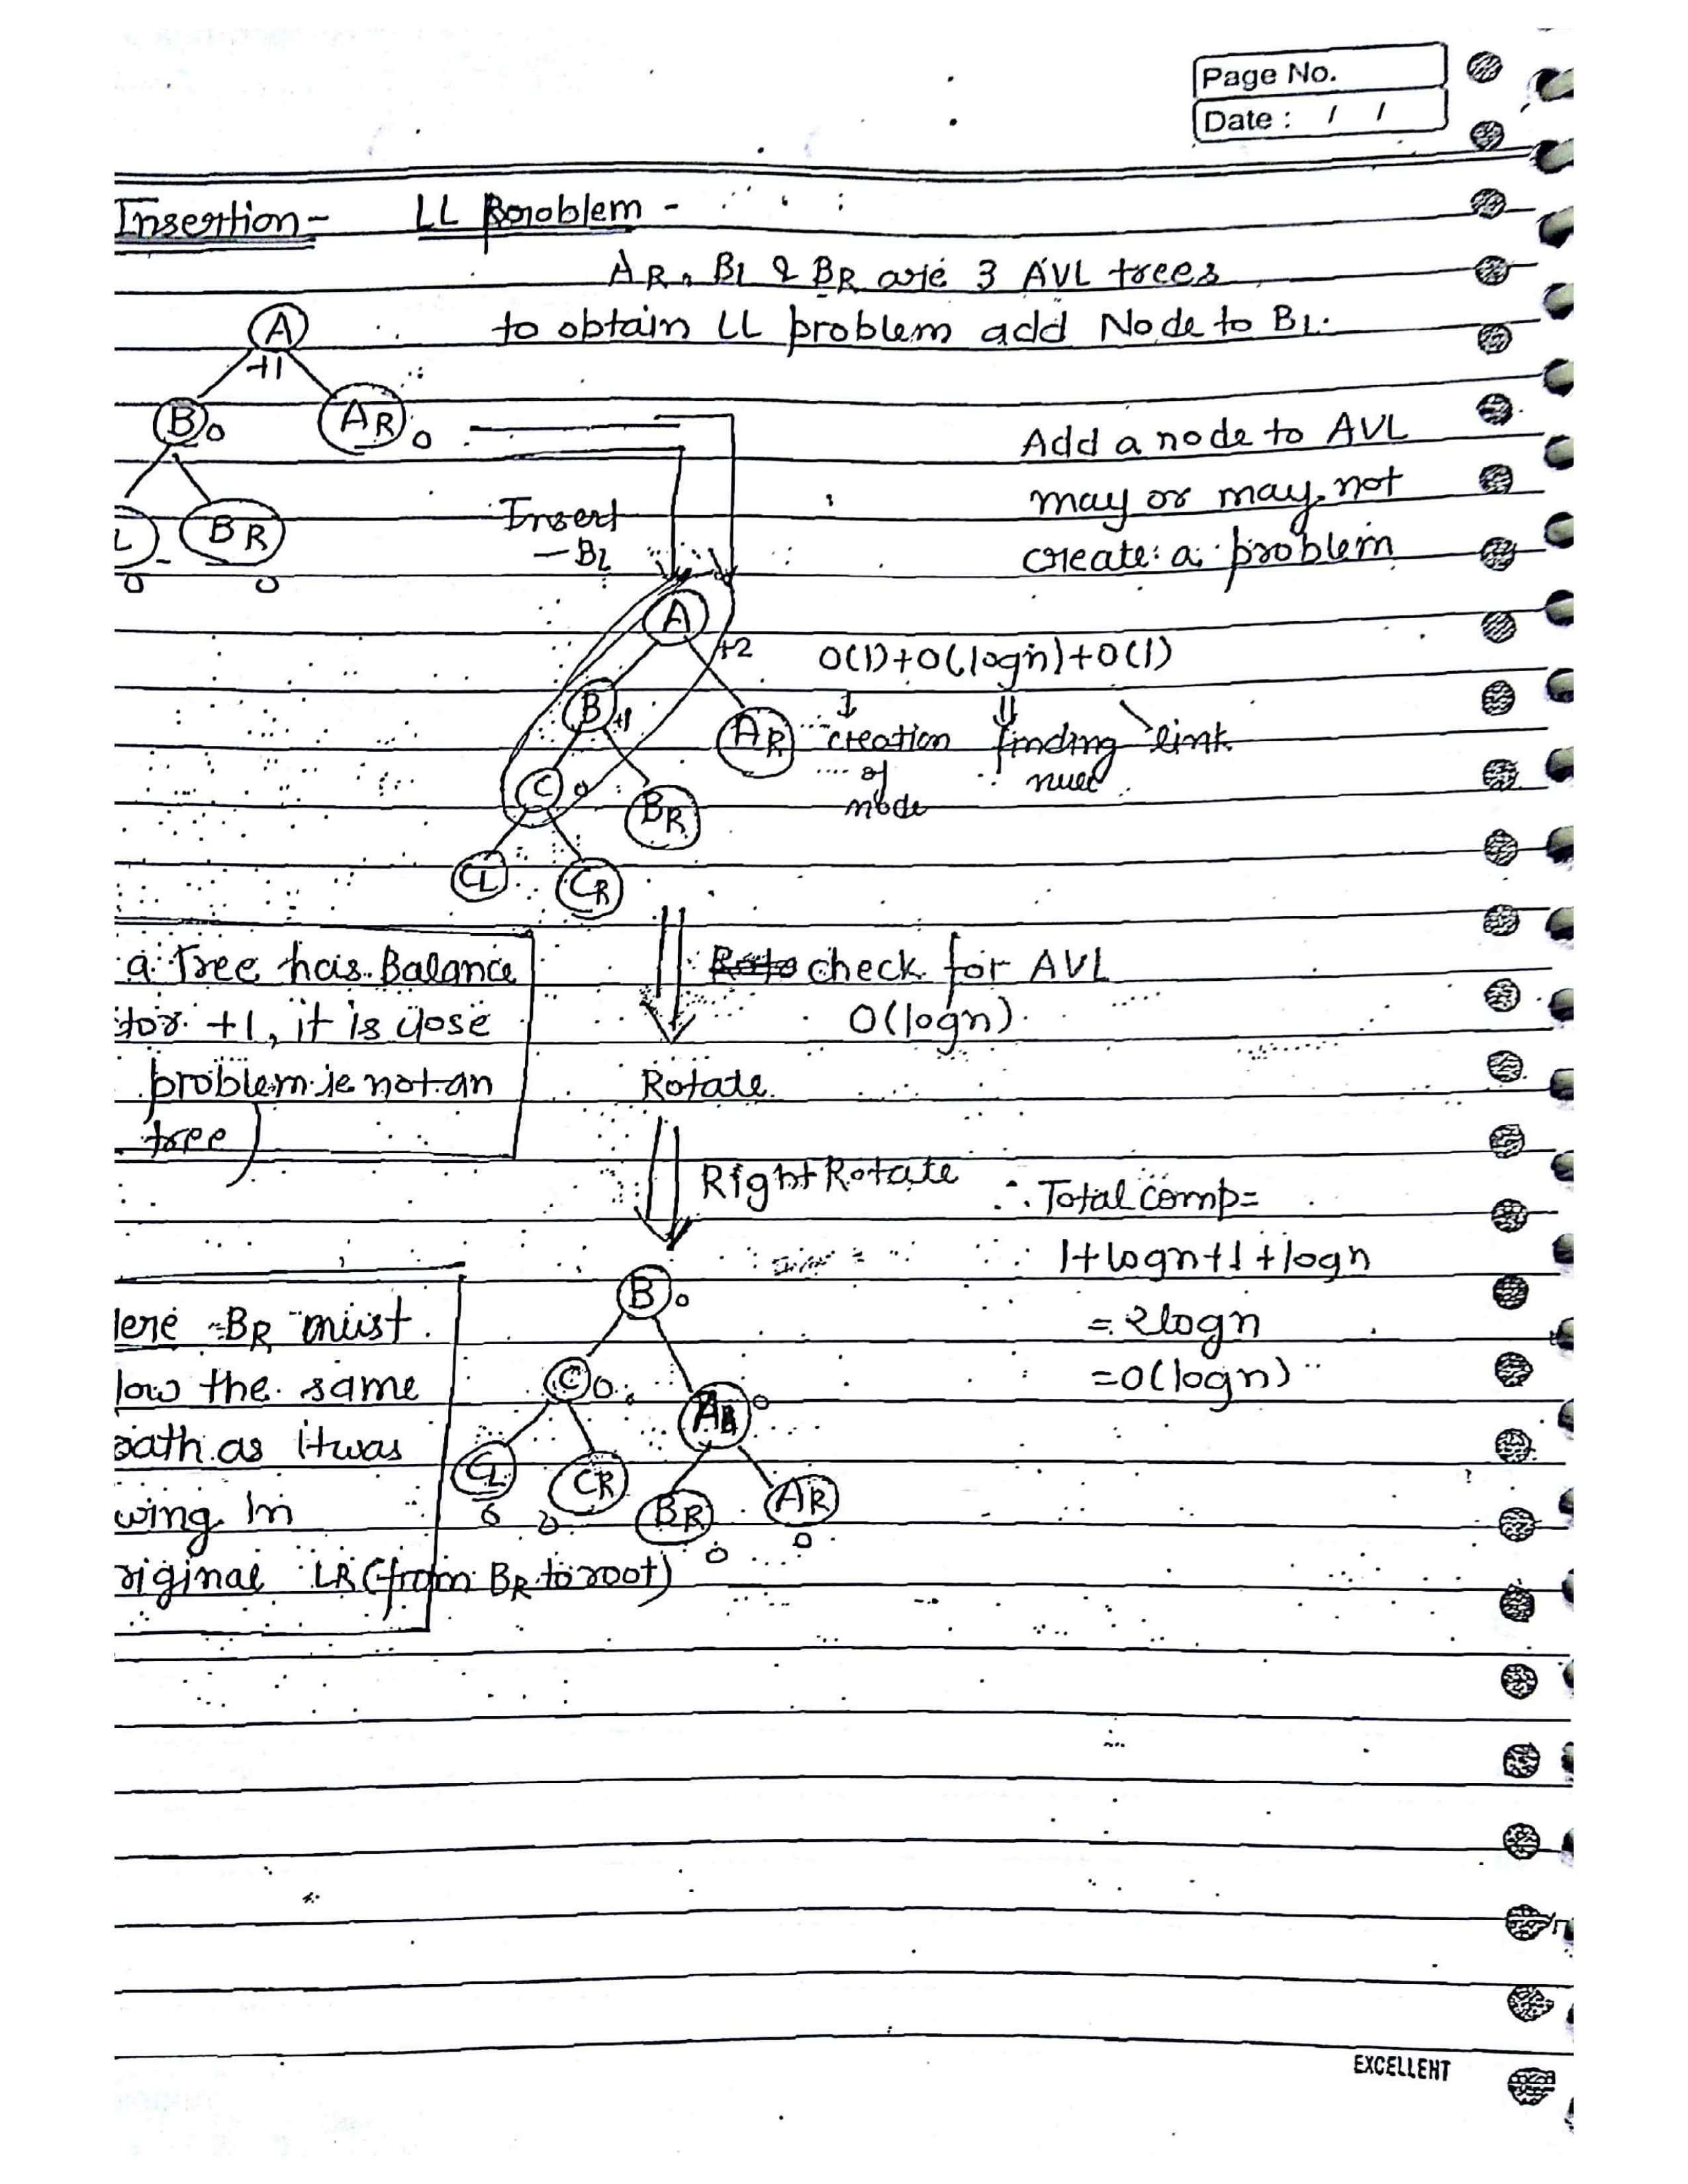 Page No.
Date : / /
Insertion - LL Problem -
AR, BL & BR are 3 AVL trees
to obtain LL problem add Node to BL.
A
+1
B 0
AR 0
L
0
BR
0
Add a node to AVL
may or may not
create a problem
Insert
- BL
A
+2
B +1
AR
C 0
BR
CL
CR
O(1)+O(logn)+O(1)
creation
of
node
finding
link
a Tree has Balance
tor +1, it is close
problem ie not an
tree)
check for AVL
O(logn)
Rotate
Right Rotate
∴ Total comp =
1+logn+1+logn
= 2logn
= O(logn)
B 0
C 0
A 0
CL
0
CR
0
BR
0
AR
0
lere BR must
low the same
path as it was
wing in
riginal LR (from BR to root)
EXCELLENT